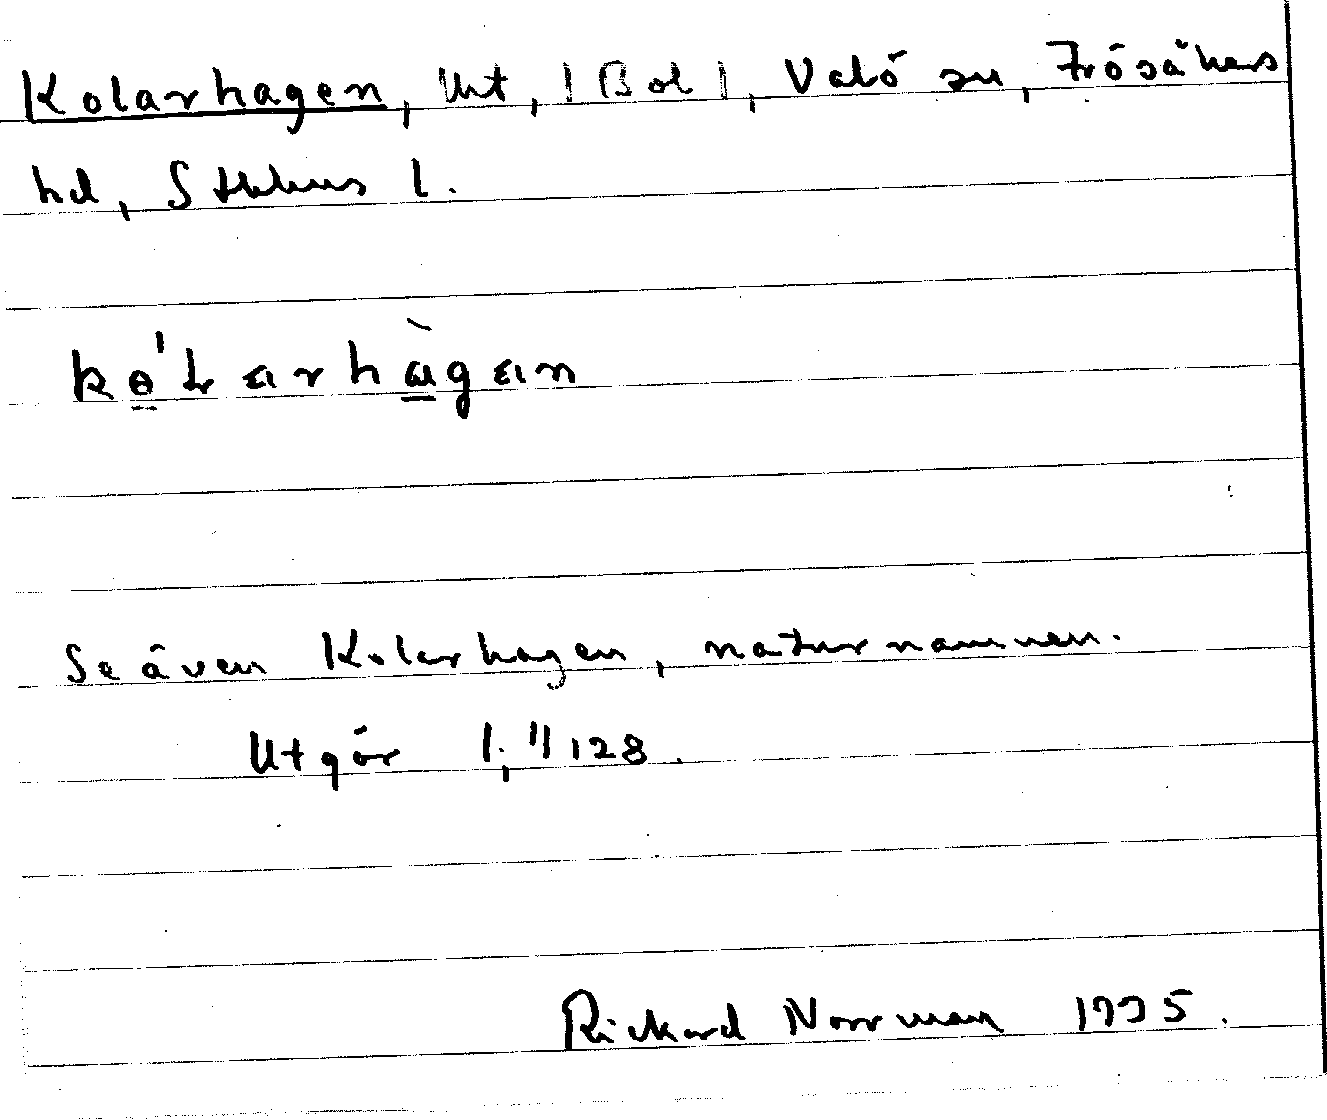 Kolarhagen, Utt, | Bol |, Valö sn, Frösåkers
hd, Sthlms l.
kɵ'Larhàgan
Se även Kolarhagen, naturnamnen.
Utgör 1;"128.
Rickard Norrman 1935.